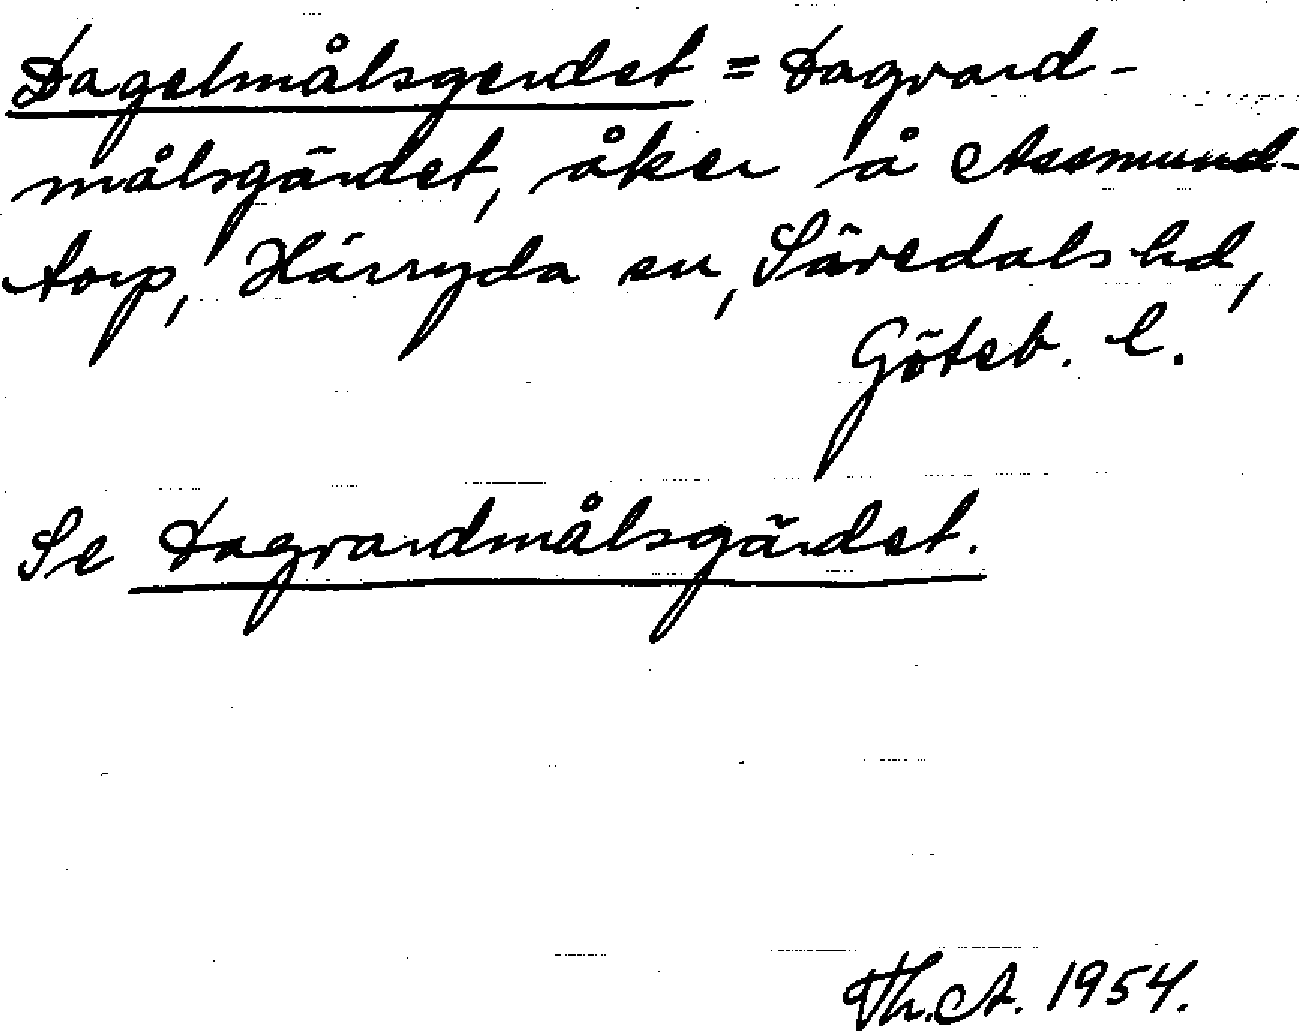 Dagelmålsgerdet = Dagvard-
målsgärdet, åker å Assmund-
torp, Härryda sn, Sävedals hd,
Göteb. l.
Se Dagvardmålsgärdet.
Th. A. 1954.